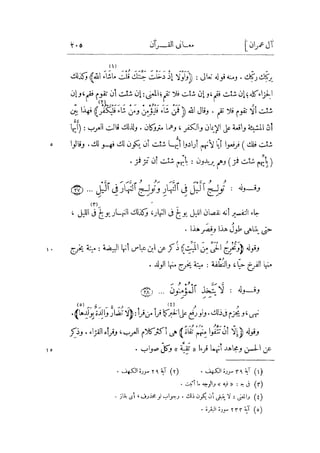 آل عمران ] معانى القرآن ٢٠٥
بربّك ربّك . ومنه قوله تعالى : ﴿ وَلَوْلَا إِذْ دَخَلْتَ جَنَّتَكَ قُلْتَ مَاشَاءَ اللهُ ﴾ وكذلك
الجزاء كله ؛ إن شئت فقم ، وإن شئت فلا تقم ؛ المعنى : إن شئت أن تقوم فقم ، وإن
شئت ألّا تقوم فلا تقم . وقال الله ﴿ فَمَنْ شَاءَ فَلْيُؤْمِنْ وَمَنْ شَاءَ فَلْيَكْفُرْ ﴾ فهذا بيّن
أن المشيئة واقعة على الإيمان والكفر ، وهما متروكان . ولذلك قالت العرب : ( أيّها
شئت فلك ) فرفعوا أيّا لأنهم أرادوا أيّها شئت أن يكون لك فهو لك . وقالوا ٥
( بأيّهم شئت فمرّ ) وهم يريدون : بأيّهم شئت أن تمرّ فمرّ .
وقوله : تُولِجُ ٱلَّيْلَ فِي ٱلنَّهَارِ وَتُولِجُ ٱلنَّهَارَ فِي ٱلَّيْلِ ... (٢٧)
جاء التفسير أنه نقصان الليل يولج فى النهار ، وكذلك النهار يولج فى الليل ،
حتى يتناهى طول هذا وقصر هذا .
وقوله ﴿ وَتُخْرِجُ الْحَيَّ مِنَ الْمَيِّتِ ﴾ ذكر عن ابن عباس أنها البيضة : ميتة يخرج ١٠
منها الفرخ حيّا ، والنطفة : ميتة يخرج منها الولد .
وقوله : لَا يَتَّخِذِ ٱلْمُؤْمِنُونَ ... (٢٨)
نهى ، ويجزم فى ذلك . ولو رفع على الخبر كما قرأ من قرأ : ﴿ لَا تُضَارُّ وَالِدَةٌ بِوَلَدِهَا ﴾ .
وقوله ﴿ إِلَّا أَنْ تَتَّقُوا مِنْهُمْ تُقَاةً ﴾ هى أكثر كلام العرب ، وقرأه القرّاء . وذكر
عن الحسن ومجاهد أنهما قرءا « تَقِيَّة » وكلّ صواب . ١٥
(١) آية ٣٩ سورة الكهف . (٢) آية ٢٩ سورة الكهف .
(٣) فى ج : « فيه » والوجه ما أثبت .
(٥) آية ٢٣٣ سورة البقرة .